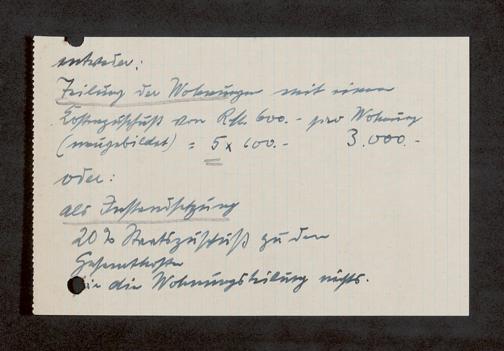 entweder:
Teilung der Wohnungen mit einem
Kostenzuschuß von RM. 600.- pro Wohnung
(neugebildet) = 5 x 600.- 3.000.-
oder:
als Instandsetzung
20% Staatszuschuß zu den
Gesamtkosten
die Wohnungsteilung nichts.